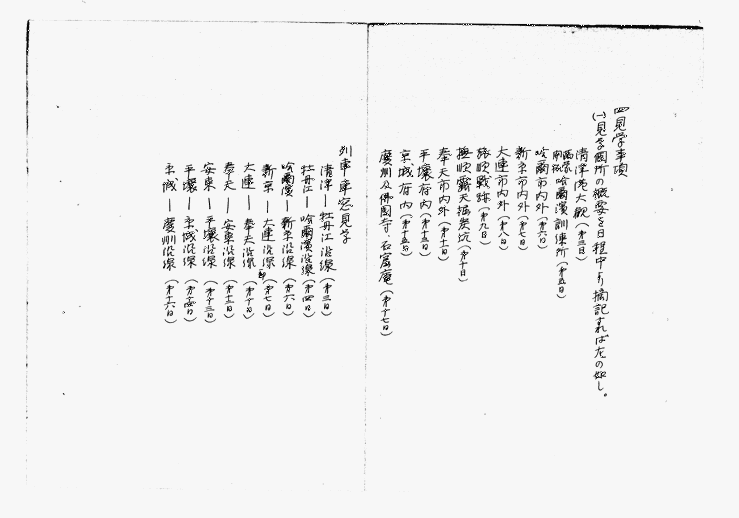 四 見学事項
(一)見学個所の概要を日程中より摘記すれば左の如し。
清津港大観(第三日)
哈爾濱訓練所(第五日)
哈爾市内外(第六日)
新京市内外(第七日)
大連市内外(第八日)
旅順戦跡(第九日)
撫順露天掘炭坑(第十日)
奉天市内外(第十一日)
平壌府内(第十三日)
京城府内(第十五日)
慶州及佛國寺、石窟庵(第十七日)
列車車窓見学
清津―牡丹江沿線(第三日)
牡丹江―哈爾濱沿線(第四日)
哈爾濱―新京沿線(第六日)
新京―大連沿線(第七日)
大連―奉天沿線(第十日)
奉天―安東沿線(第十二日)
安東―平壌沿線(第十三日)
平壌―京城沿線(第十四日)
京城―慶州沿線(第十六日)